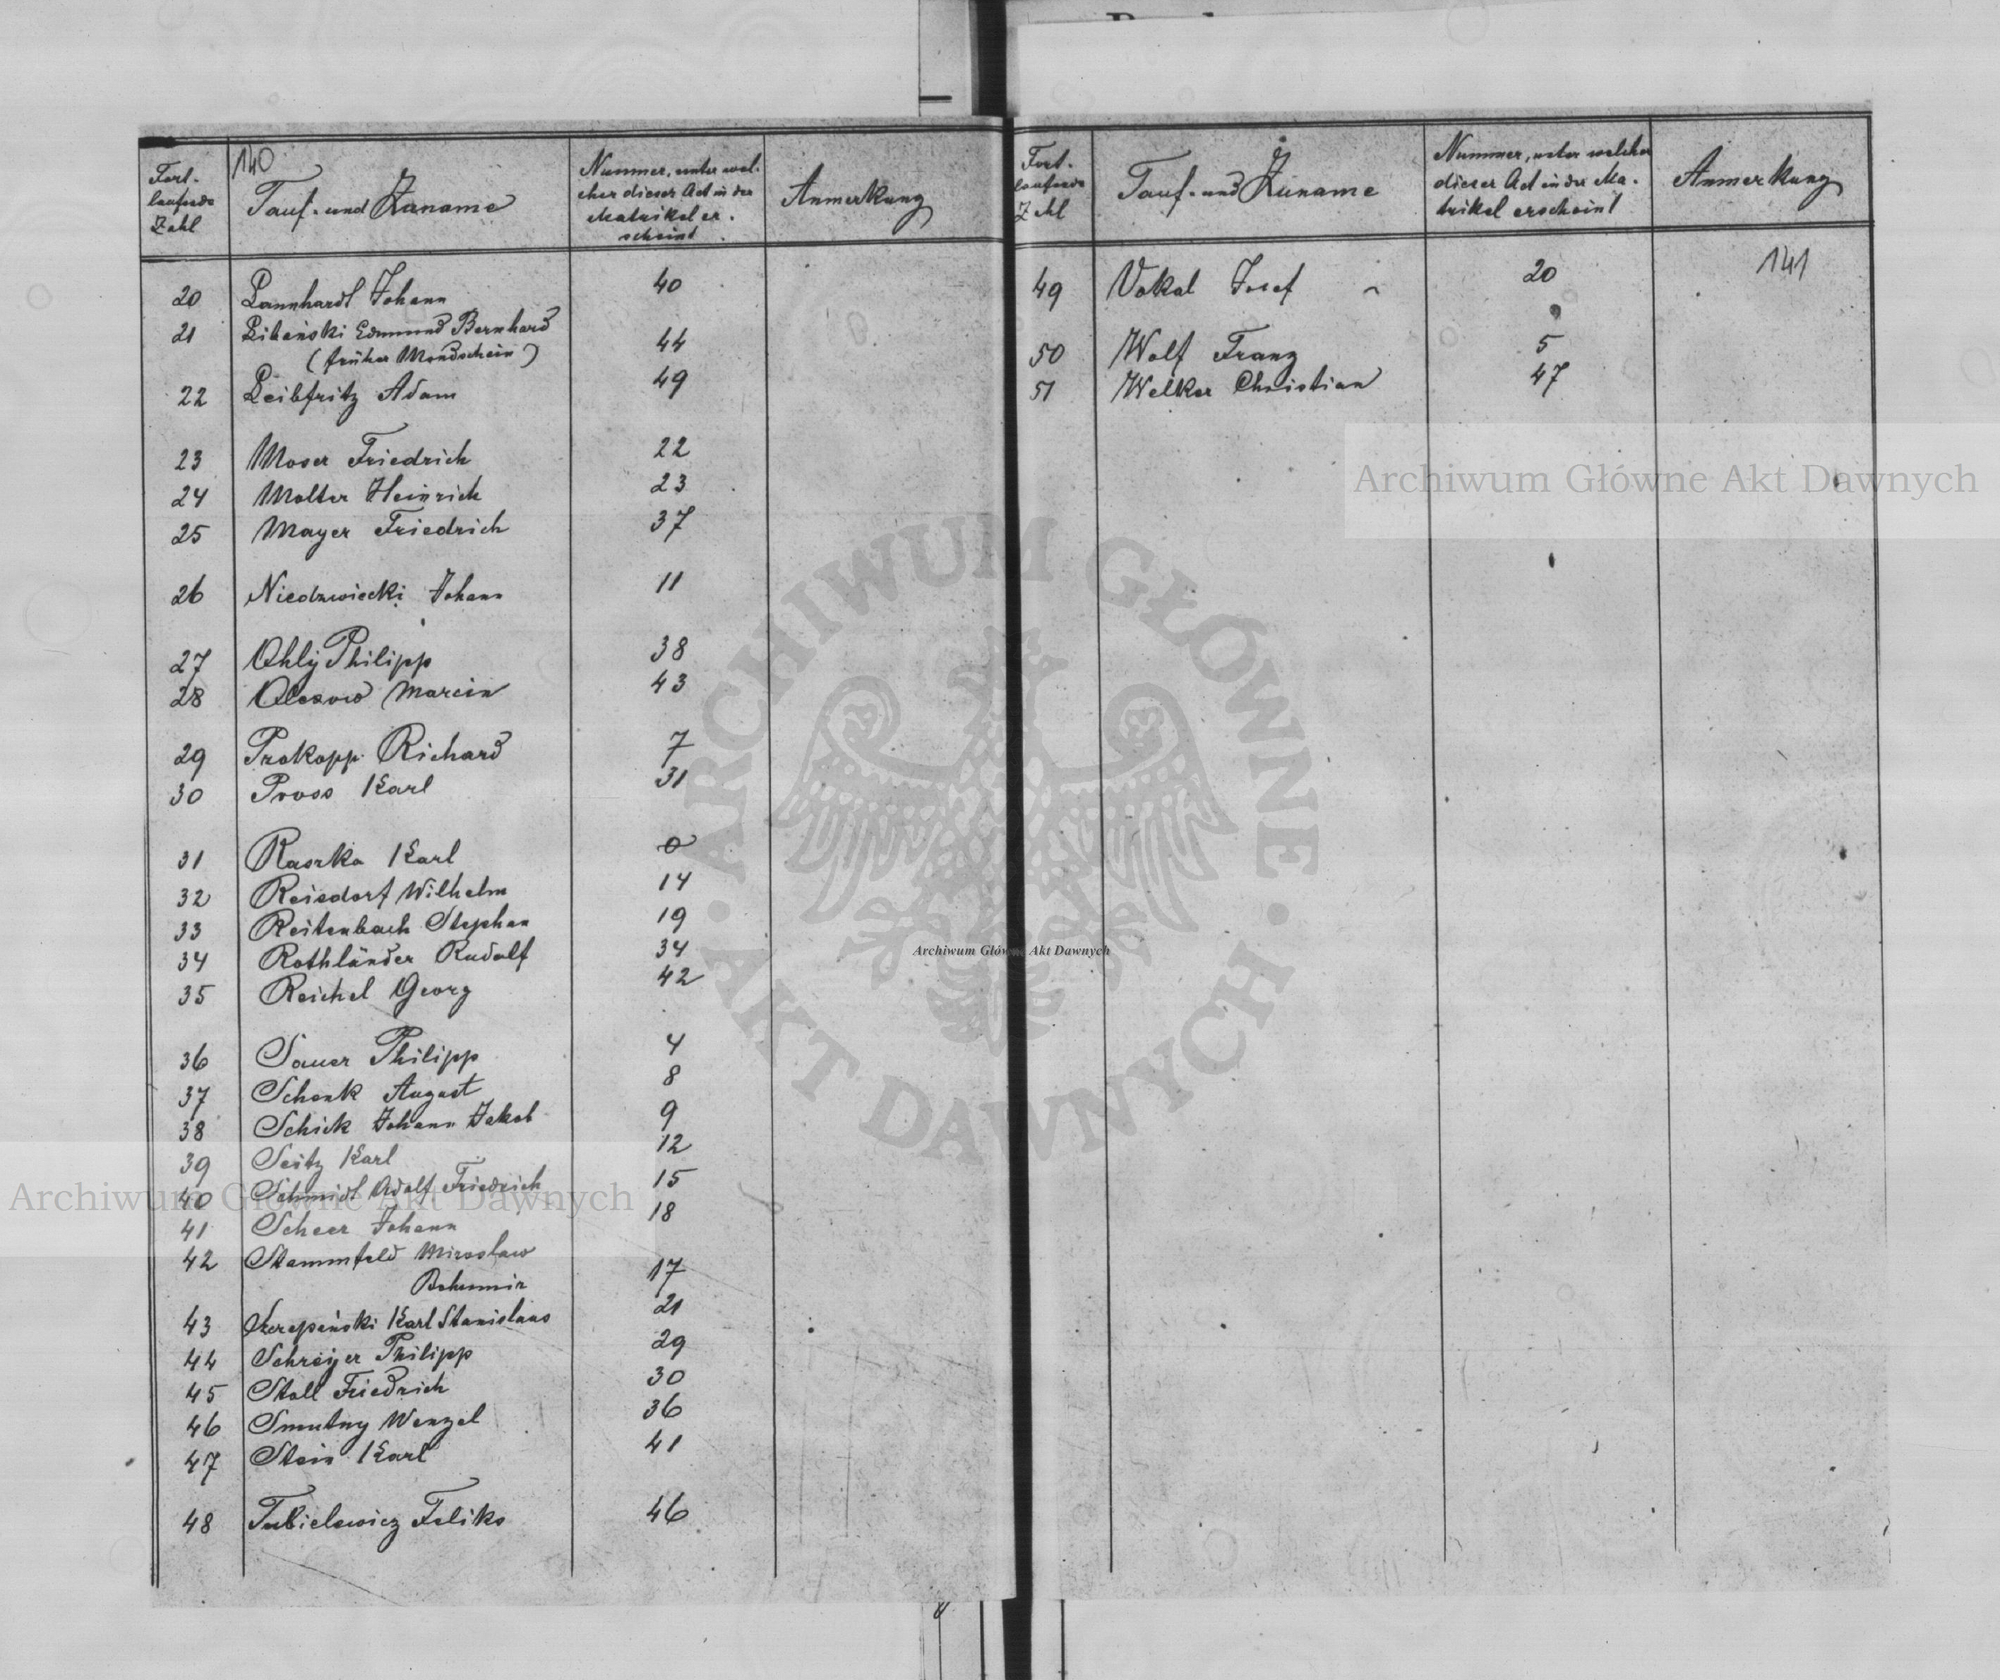 140
Fort-
laufende
Zahl
Tauf- und Zuname
Nummer, unter wel-
cher dieser Act in der
Matrikel er-
scheint
Anmerkung
20 Lannhardt Johann 40
21 Libański Edmund Bernhard
(früher Mondschein) 44
22 Leibfritz Adam 49
23 Moser Friedrich 22
24 Molter Heinrich 23
25 Mayer Friedrich 37
26 Niedzwiecki Johann 11
27 Ohly Philipp 38
28 Marcin 43
29 Prokopp Richard 7
30 Pross Karl 31
31 Raszka Karl 0
32 Reisdorf Wilhelm 14
33 Reitenbach Stephan 19
34 Rothländer Rudolf 34
35 Reichel Georg 42
36 Sauer Philipp 4
37 Schenk August 8
38 Schick Johann Jakob 9
39 Seitz Karl 12
40 Schmidt Adolf Friedrich 15
41 Scheer Johann 18
42 Stammfeld Miroslaw
Bohumir 17
43 Szczepański Karl Stanislaus 21
44 Schreyer Philipp 29
45 Stoll Friedrich 30
46 Smutny Wenzel 36
47 Stein Karl 41
48 Tubielewicz Feliks 46
Fort-
laufende
Zahl
Tauf- und Zuname
Nummer, unter welcher
dieser Act in der Ma-
trikel erscheint
Anmerkung
141
49 Vokal Josef 20
50 Wolf Franz 5
51 Welker Christian 47
Archiwum Główne Akt Dawnych
ARCHIWUM GŁÓWNE · AKT DAWNYCH ·
Archiwum Główne Akt Dawnych
Archiwum Główne Akt Dawnych